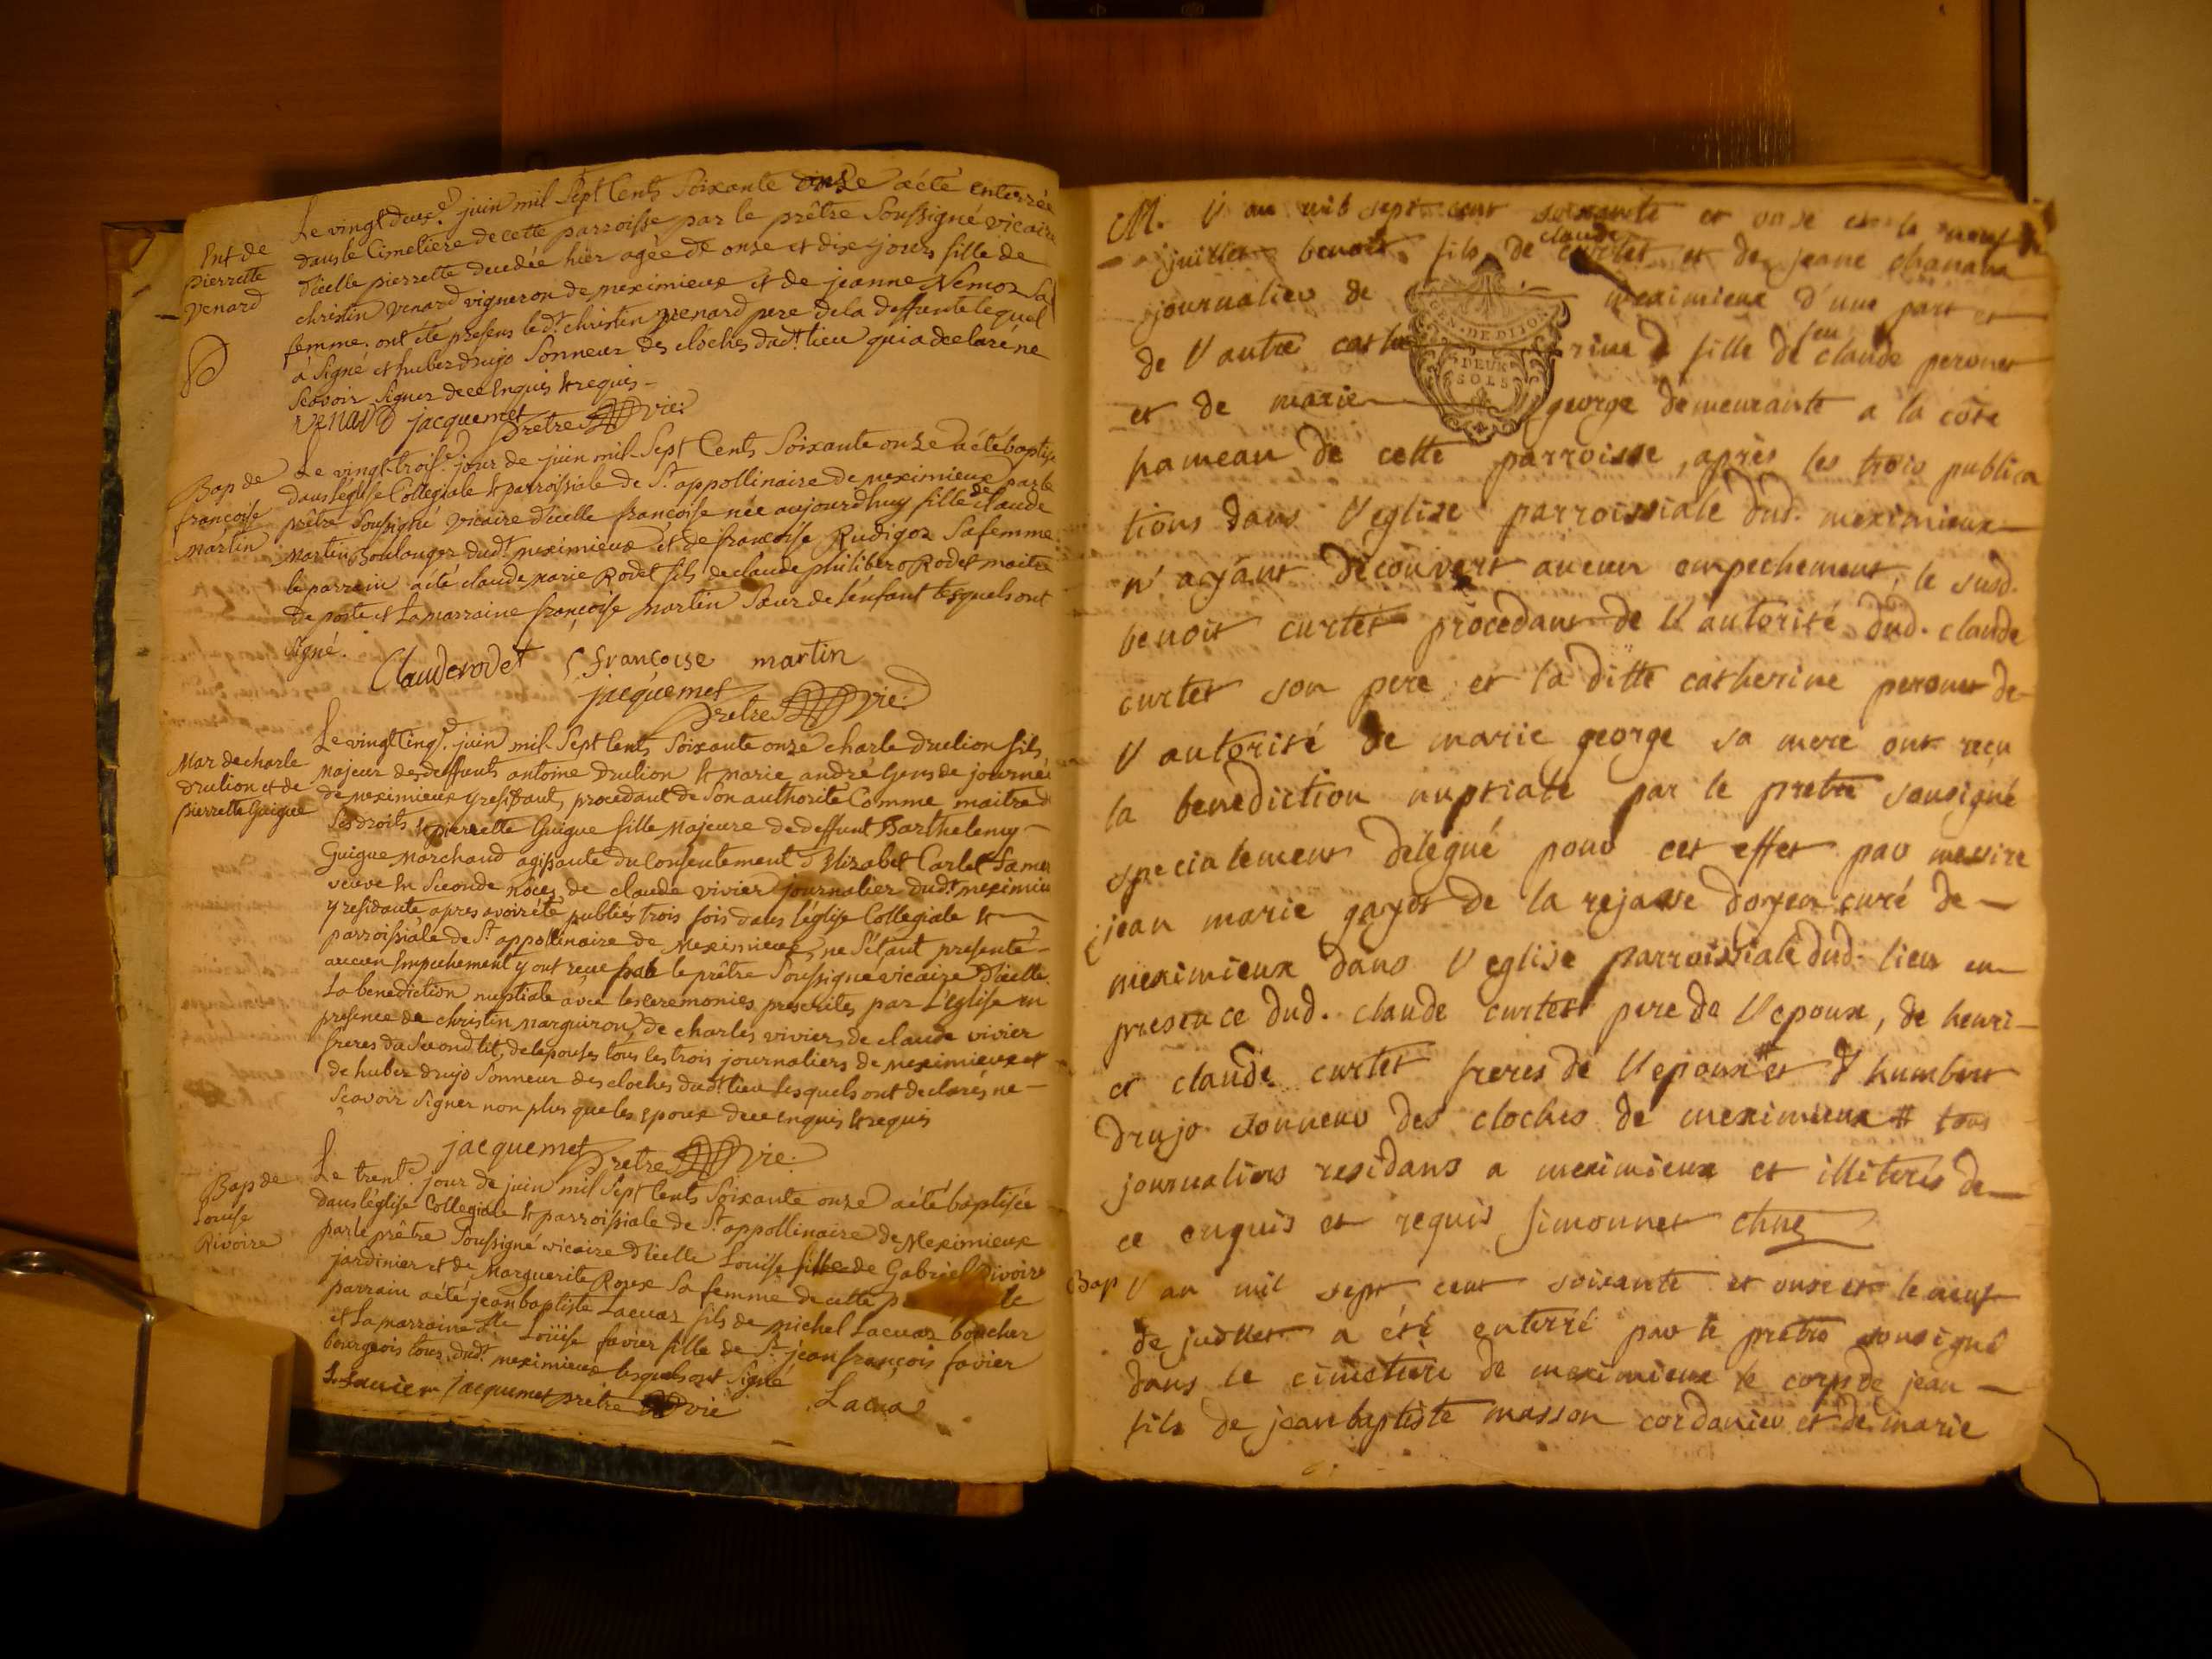 Le vingt deuxe juin mil Sept Cents Soixante onze a été enterrée
Ent de
pierrette
venard
dans le Cimetiere de cette parroisse par le prêtre Soussigné vicaire
d'icelle pierrette decedée hier agée de onze et dix jours fille de
christin venard vigneron de meximieux et de jeanne Nemoz Sa
femme. ont été presens led.t christin venard pere de la deffunte lequel
a Signé et huber drujo Sonneur des cloches dud.t lieu qui a declaré ne
Scavoir Signer de ce Enquis & requis
venard jacquemet pretre vic:
Bap de
françoise
martin
Le vingt-trois.e jour de juin mil Sept Cents Soixante onze a été baptisé
dans l'église Collegiale & parroissiale de St. appollinaire de meximieux par le
prêtre Soussigné vicaire d'icelle françoise née aujourdhuy fille de claude
martin Boulonger dud.t meximieux et de françoise Rudigoz Sa femme
le parrain a été claude marie Rodet fils de claude philibero Rodet maitre
de poste et la marraine françoise martin Sœur de l'enfant lesquels ont
Signé.
Clauderodet françoise martin
jacquemet
pretre vic:
Mar de charle
drution et de
pierrette Guigue
Le vingt cinq.e juin mil Sept Cents Soixante onze charle drution fils
majeur des deffunts antoine drution & marie andré Gens de journée
de meximieux y residant, procedant de Son authorité Comme maitre d
Ses droits & pierrette Guigue fille majeure de deffunt Barthelemy
Guigue marchand agissante du Consentement d'Elizabet Carlet Sa mer
veuve En Seconde noces de claude vivier journalier dud.t meximieu
y residante, apres avoir été publiés trois fois dans l'église Collegiale &
parroissiale de St. appollinaire de Meximieux, ne S'étant presenté
aucun Empechement y ont reçue par le prêtre Soussigné vicaire d'icelle
La benediction nuptiale avec les ceremonies prescrites par L'Eglise en
presence de christin marguiron, de charles vivier, de claude vivier
freres du Second lit, de lepouse, tous les trois journaliers de meximieux et
de huber drujo Sonneur des cloches dud.t lieu lesquels ont declarés ne
Scavoir Signer non plus que les Epoux de ce enquis & requis
jacquemet pretre vic:
Bap de
Louise
Rivoire
Le trent.e jour de juin mil Sept Cents Soixante onze a été baptisée
dans l'église Collegiale & parroissiale de St. appollinaire de Meximieux
par le prêtre Soussigné vicaire d'icelle Louise fille de Gabriel Rivoire
jardinier et de Marguerite Roux Sa femme de cette p le
parrain a été jean baptiste Lacuaz fils de michel Lacuaz boucher
et La marraine dlle Loüise favier fille de Sr. jean françois favier
bourgeois tous dud.t meximieux lesquels ont Signé
jacquemet pretre vic Lacua
M. l'an mil sept cent soixante et onze et le neuf de
juillet benoit fils de claude curtet et de jeane chanana
journalier de meximieux d'une part et
de l'autre cathe rine fille de feu claude peronet
et de marie george demeurante a la côte
hameau de cette parroisse, après les trois publica
tions dans l'eglise parroissiale dud. meximieux
n'ayant decouvert aucun empechement, le susd.
benoit curtet procedant de l'autorité dud. claude
curtet son pere et la ditte catherine peronet de
l'autorité de marie george sa mere ont reçu
la benediction nuptiale par le pretre sousigné
specialement delegué pour cet effet par messire
jean marie gayot de la rejasse doyen curé de
meximieux dans l'eglise parroissiale dud. lieu en
presence dud. claude curtet pere de l'epoux, de henri
et claude curtet freres de l'epoux # et d'humbert
drujo sonneur des cloches de meximieux # tous
journaliers residans a meximieux et illiterés de
ce enquis et requis simonnet chne
Bap l'an mil sept cent soixante et onze et le neuf
de juillet a été enterré par le pretre sousigné
dans le cimetiere de meximieux le corps de jean
fils de jean baptiste masson cordanier et de marie
GEN. DE DIJON
DEUX
SOLS